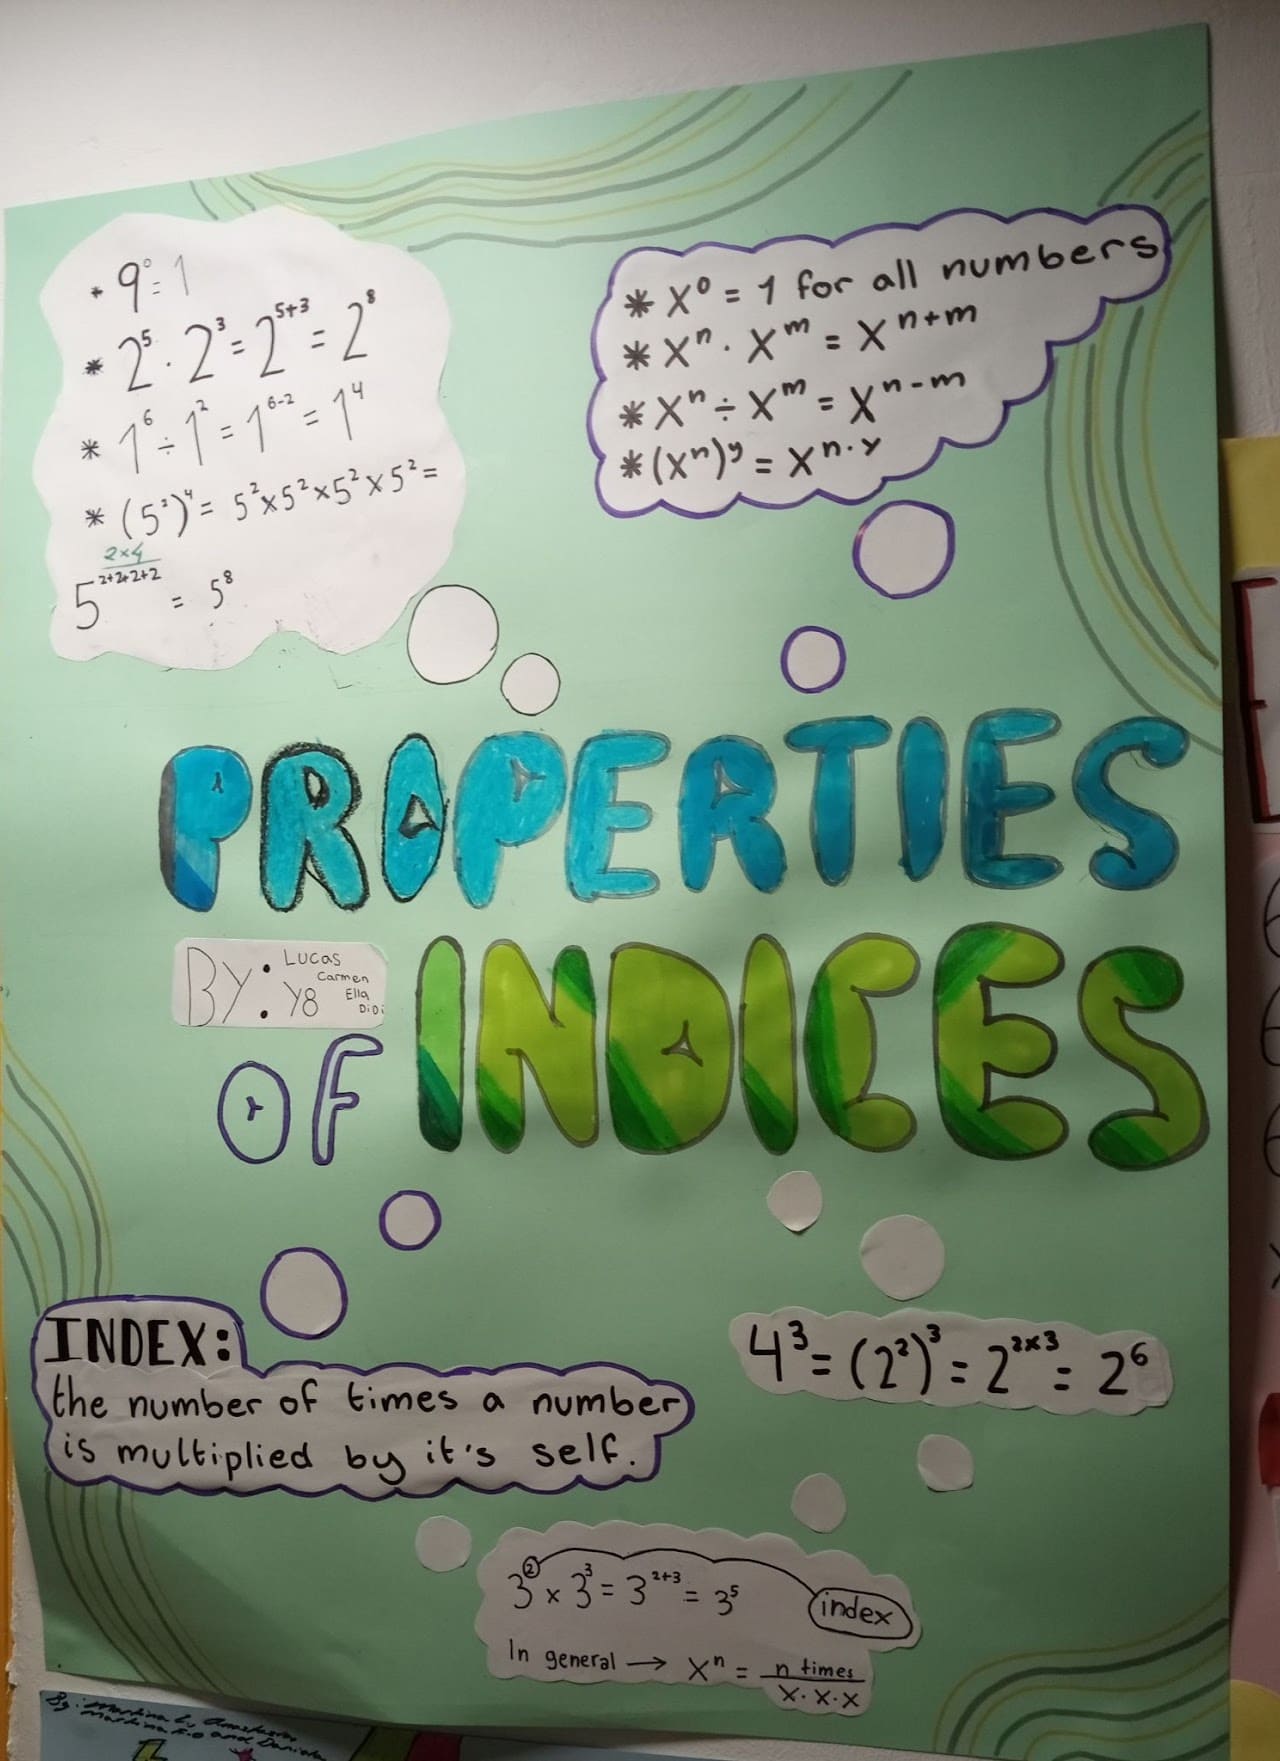 * 9⁰ = 1
* 2⁵ · 2³ = 2⁵⁺³ = 2⁸
* 1⁶ ÷ 1² = 1⁶⁻² = 1⁴
* (5²)⁴ = 5² x 5² x 5² x 5² =
2x4
5²⁺²⁺²⁺² = 5⁸
* X⁰ = 1 for all numbers
* Xⁿ · Xᵐ = Xⁿ⁺ᵐ
* Xⁿ ÷ Xᵐ = Xⁿ⁻ᵐ
* (Xⁿ)ʸ = Xⁿ·ʸ
PROPERTIES
OF INDICES
BY: Lucas
Carmen
Ella
DiDi
Y8
INDEX:
the number of times a number
is multiplied by it's self.
4³ = (2²)³ = 2²ˣ³ = 2⁶
3² x 3³ = 3²⁺³ = 3⁵
index
In general → Xⁿ = n times
X · X · X
By: Martina L,
Martina F.O and